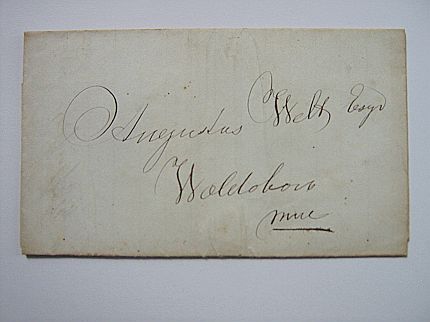 Augustus Welt Esqr
Waldoboro
Me